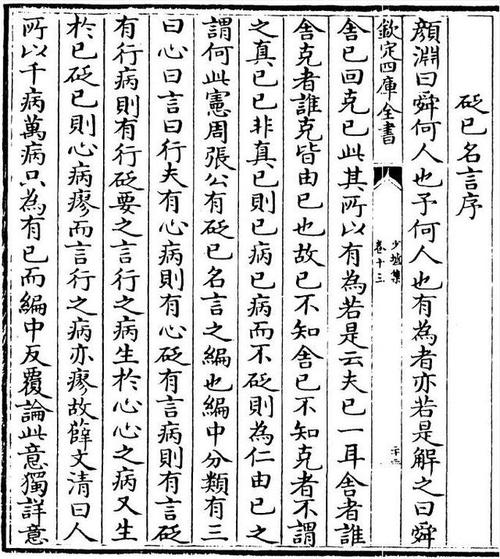 砭已名言序
顔淵曰舜何人也予何人也有為者亦若是解之曰舜
欽定四庫全書
少墟集
卷十三
舍已回克已此其所以有為若是云夫已一耳舍者誰
舍克者誰克皆由已也故已不知舍已不知克者不謂
之真已已非真已則已病已病而不砭則為仁由已之
謂何此憲周張公有砭已名言之編也編中分類有三
曰心曰言曰行夫有心病則有心砭有言病則有言砭
有行病則有行砭要之言行之病生於心心之病又生
於已砭已則心病瘳而言行之病亦瘳故薛文清曰人
所以千病萬病只為有已而編中反覆論此意獨詳意